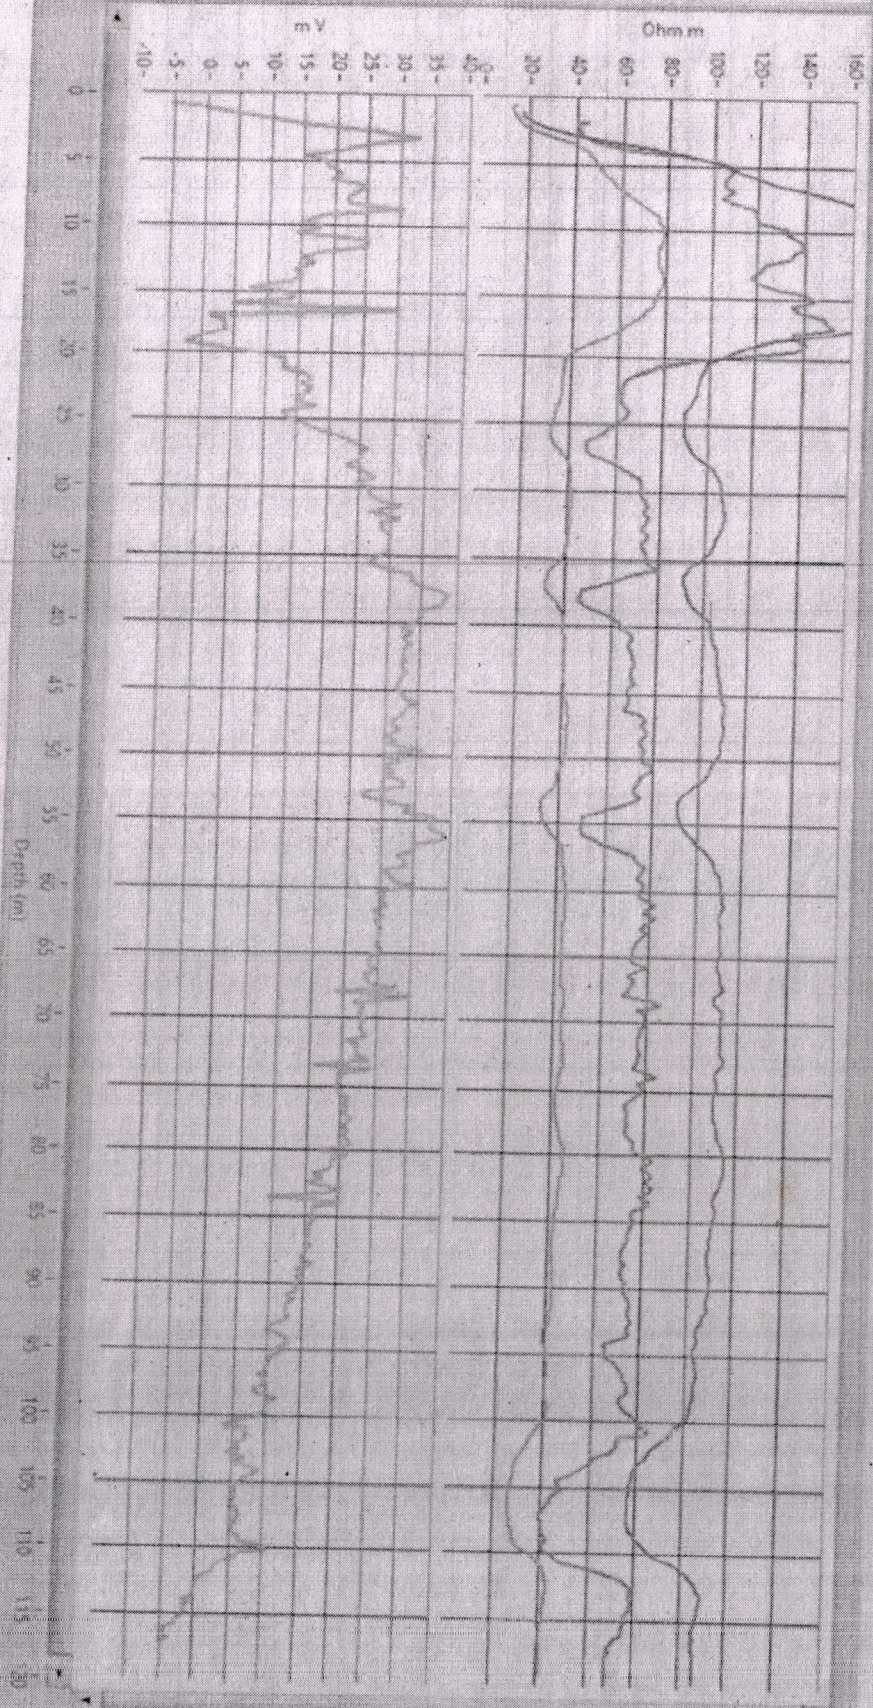 mV
-10-
-5-
0-
5-
10-
15-
20-
25-
30-
35-
40-
Ohm m
20-
40-
60-
80-
100-
120-
140-
160-
0
5
10
15
20
25
30
35
40
45
50
55
60
65
70
75
80
85
90
95
100
105
110
115
Depth (m)